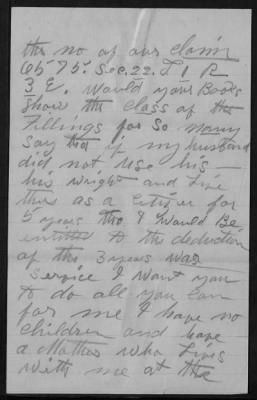 the no of our claim
6575. Sec. 22. T 1 R
3 E. Would your Books
show the class of the
Fillings for so many
say that if my husband
did not use his
his wright and Live
there as a citizen for
5 years tho I would Be
entitled to the deduction
of the 3 years war
Service I want you
to do all you can
for me I have no
children and have
a Mother who Lives
with me at the